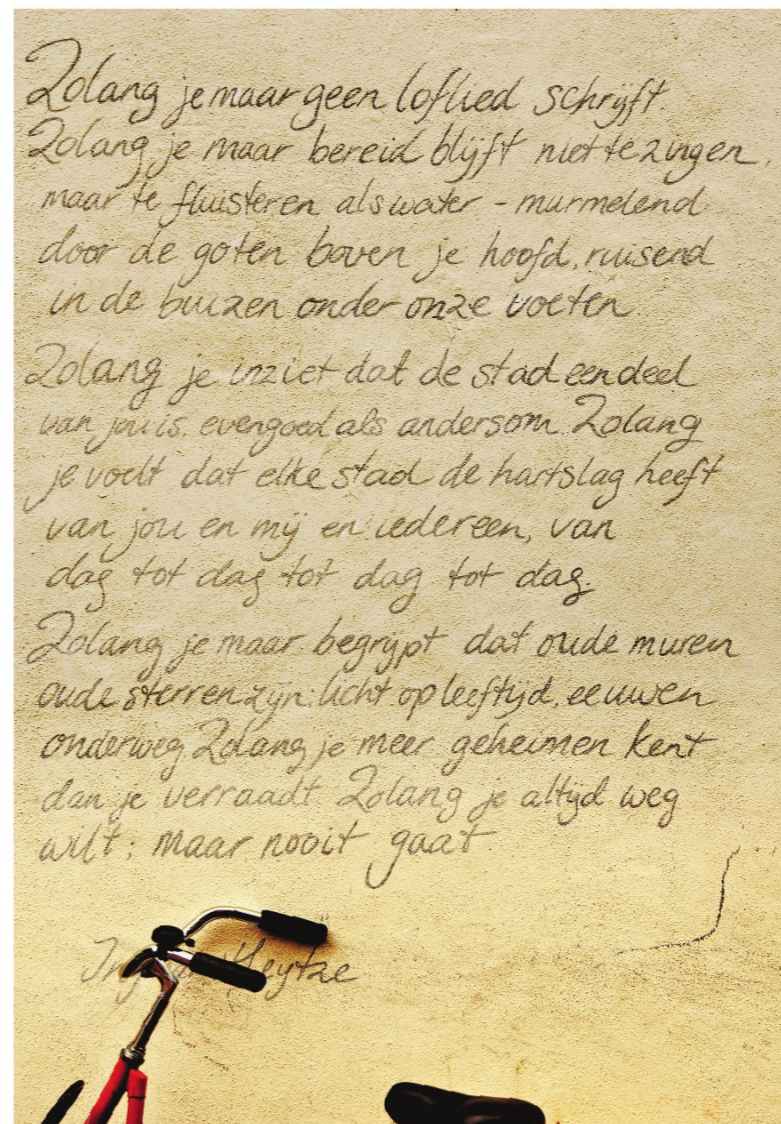 Zolang je maar geen loflied schrijft.
Zolang je maar bereid blijft niet te zingen,
maar te fluisteren als water - murmelend
door de goten boven je hoofd, ruisend
in de buizen onder onze voeten.
Zolang je inziet dat de stad een deel
van jou is, evengoed als andersom. Zolang
je voelt dat elke stad de hartslag heeft
van jou en mij en iedereen, van
dag tot dag tot dag tot dag.
Zolang je maar begrijpt dat oude muren
oude sterren zijn: licht op leeftijd, eeuwen
onderweg. Zolang je meer geheimen kent
dan je verraadt. Zolang je altijd weg
wilt; maar nooit gaat
Heytze